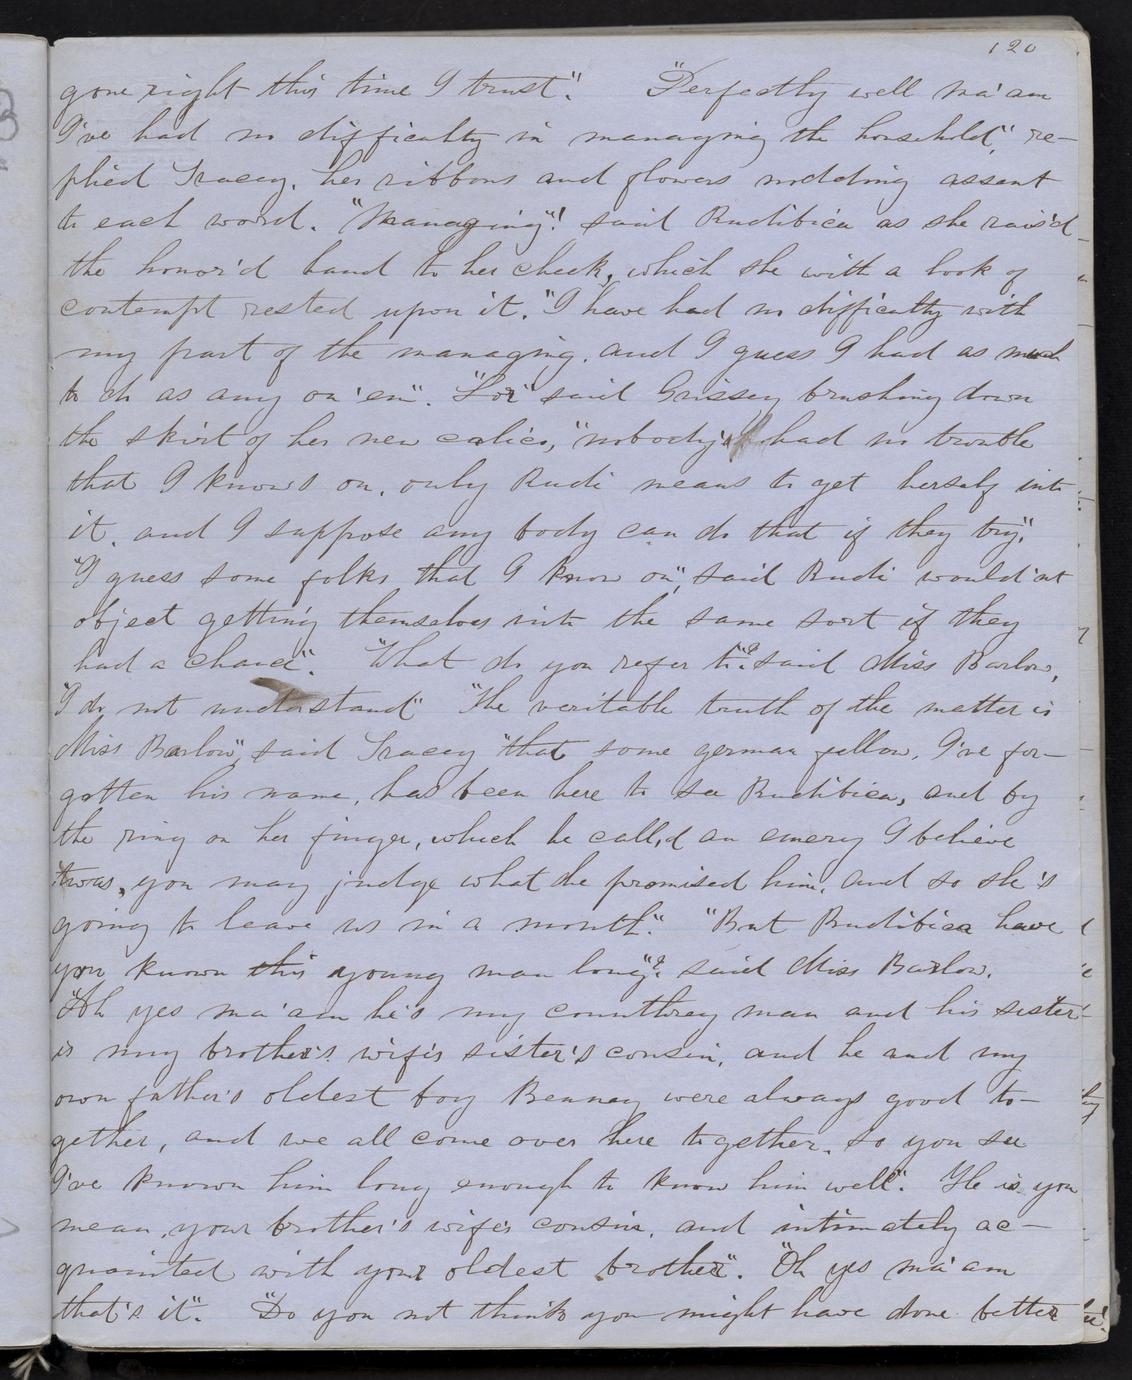 120
gone right this time I trust." "Perfectly well ma'am
I've had no difficulty in managing the household," re-
plied Tracey, her ribbons and flowers nodding assent
to each word. "Managing"! said Rudibica as she rais'd
the honor'd hand to her cheek, which she with a look of
contempt rested upon it. "I have had no difficulty with
my part of the managing, and I guess I had as much
to do as any on 'em". "Lor" said Grissey brushing down
the skirt of her new calico, "nobody had no trouble
that I knows on, only Rudi means to get herself into
it, and I suppose any body can do that if they try."
"I guess some folks that I know on," said Rudi would'nt
object getting themselves into the same sort if they
had a chance". "What do you refer to"? said Miss Barlow,
"I do not understand" "The veritable truth of the matter is
Miss Barlow", said Tracey "that some german fellow, I've for-
gotten his name, has been here to see Rudibica, and by
the ring on her finger, which he call,d an emery I believe
'twas, you may judge what she promised him, and so she's
going to leave us in a month." "But Rudibica have
you known this young man long"? said Miss Barlow.
"Oh yes ma'am he's my counthrey man and his sister
is my brother's wife's sister's cousin, and he and my
own father's oldest boy Benney were always good to-
gether, and we all come over here together, so you see
I've known him long enough to know him well". He is you
mean, your brother's wife's cousin, and intimately ac-
quainted with your oldest brother". "Oh yes ma'am
that's it". "Do you not think you might have done better